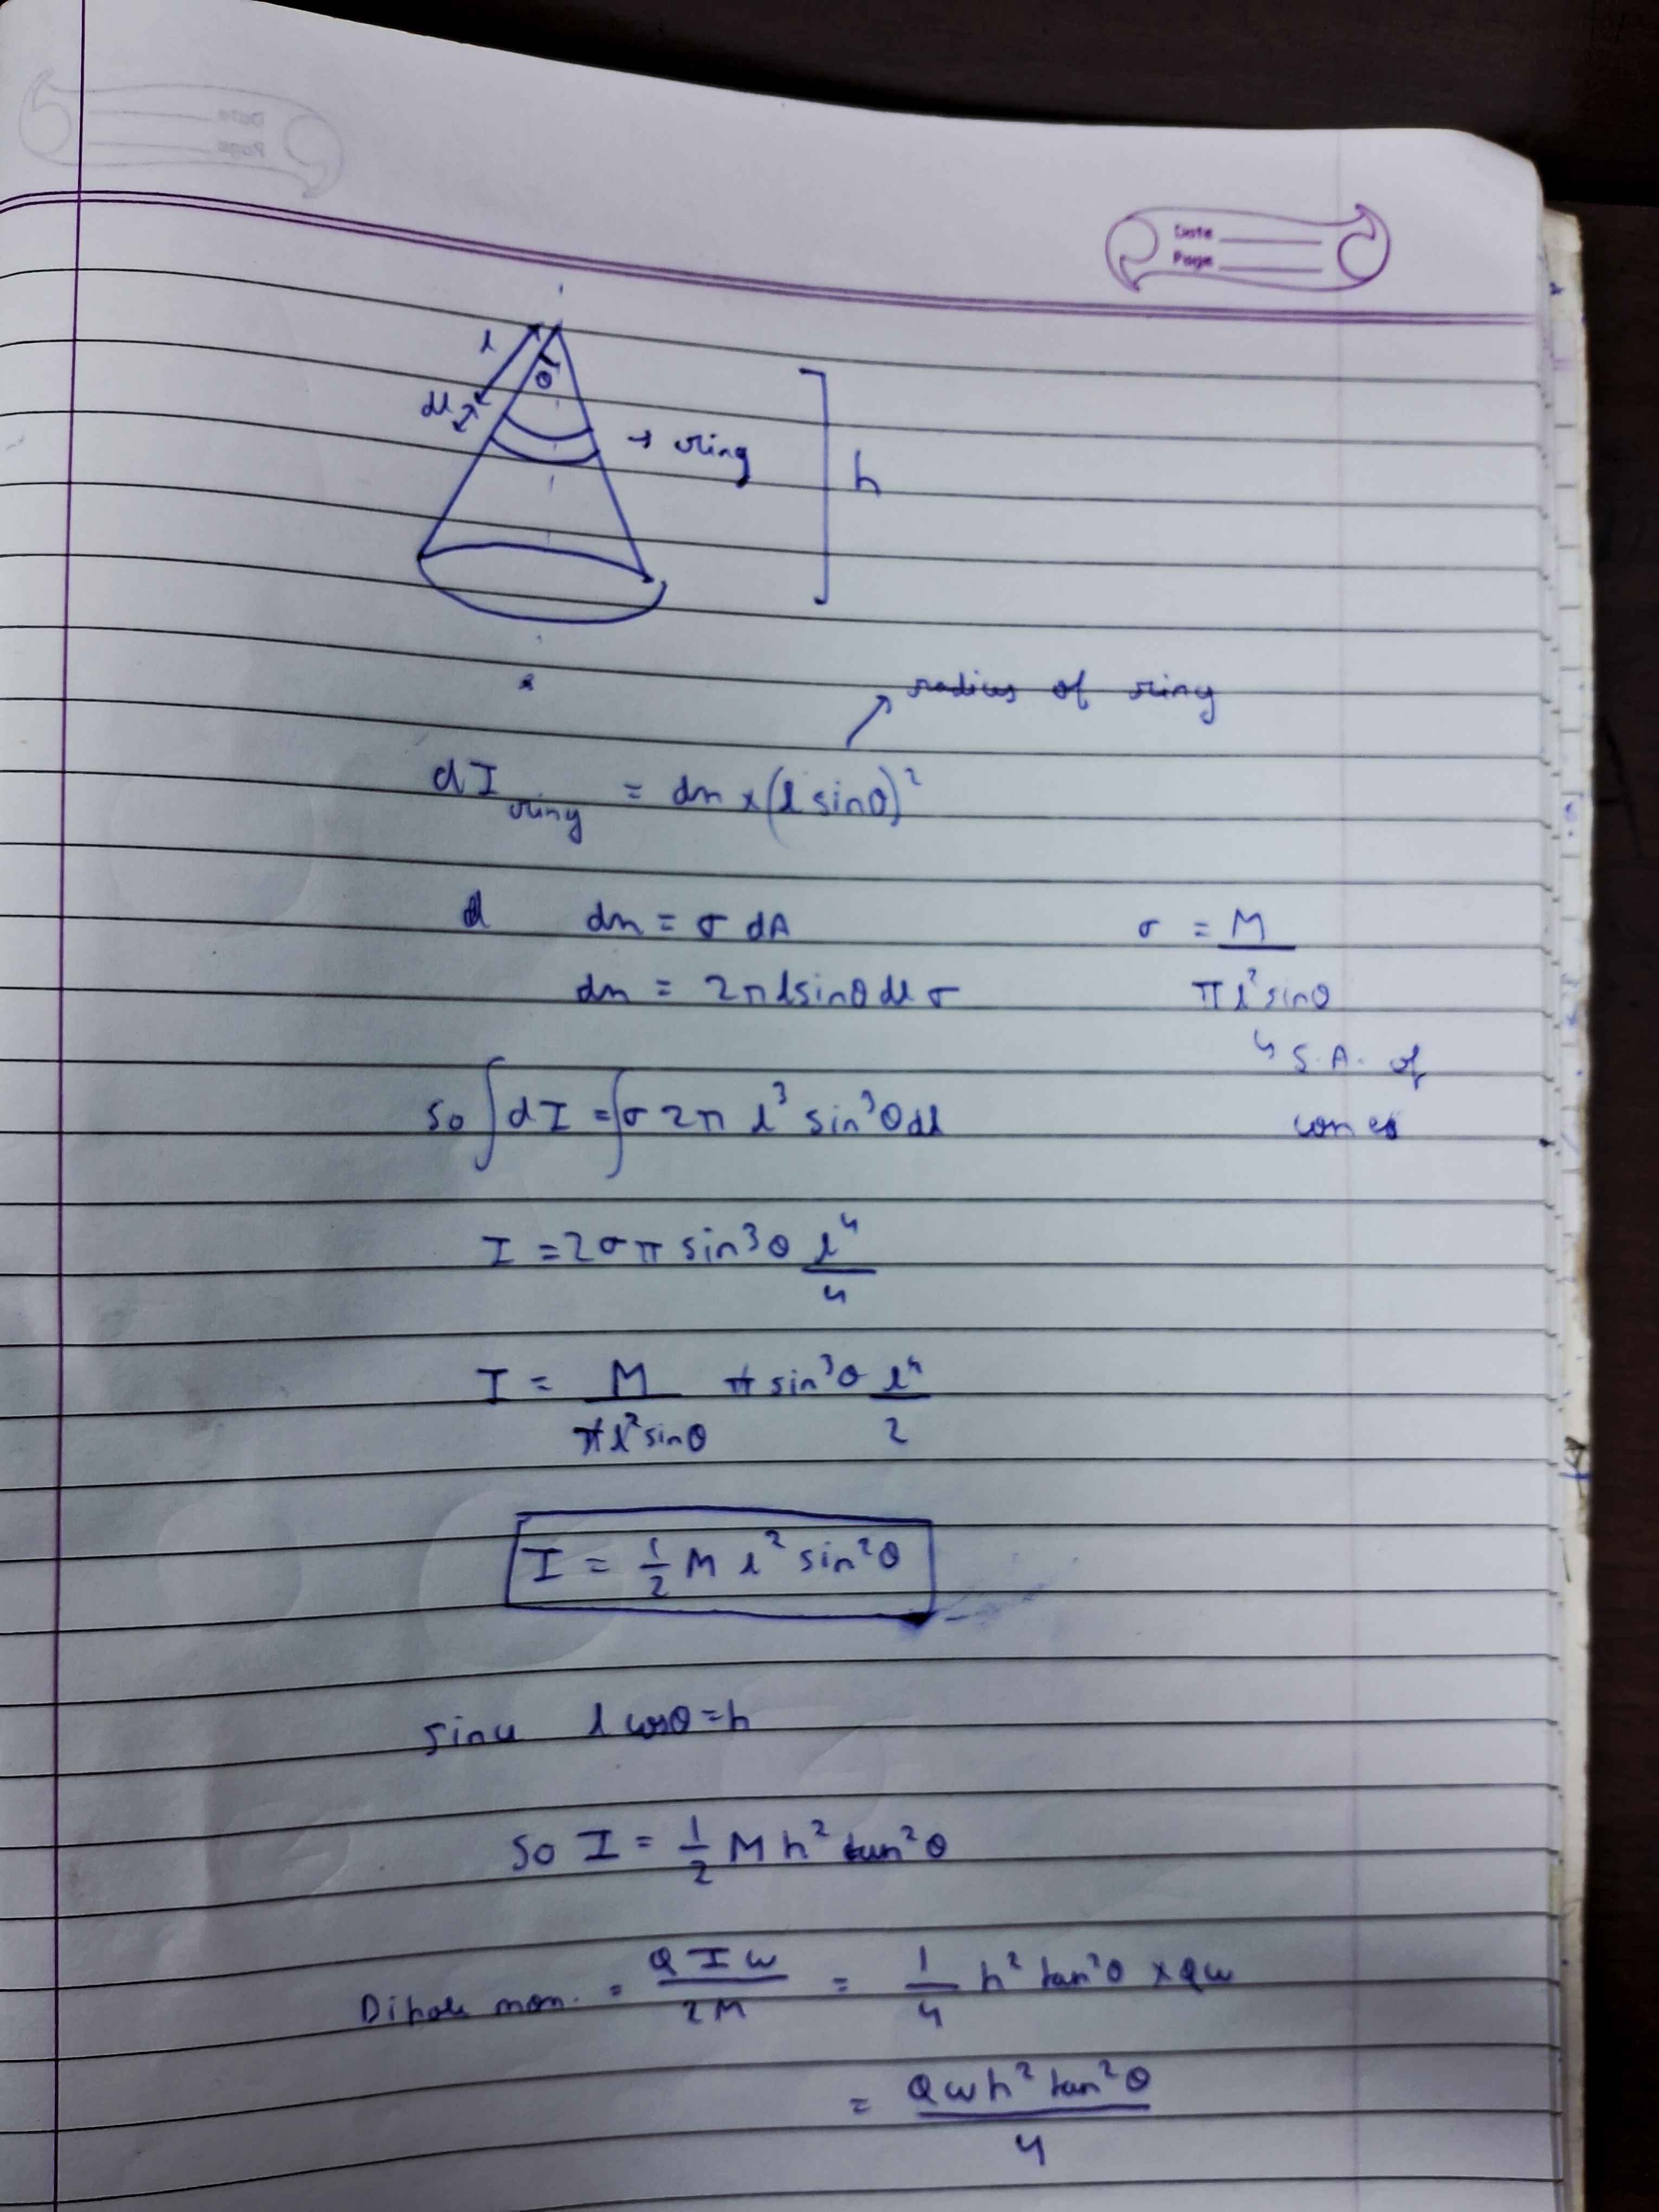 Date
Page
l
θ
dl
→ ring
h
radius of ring
dI ring = dm × (l sinθ)²
dm = σ dA
σ = M / πl² sinθ
dm = 2πl sinθ dl σ
↳ S.A. of
cone
so ∫dI = ∫σ 2π l³ sin³θ dl
I = 2σπ sin³θ l⁴/4
I = M / πl² sinθ π sin³θ l⁴/2
I = 1/2 M l² sin²θ
since l cosθ = h
so I = 1/2 M h² tan²θ
Dipole mom. = Q I ω / 2M = 1/4 h² tan²θ × Qω
= Qωh² tan²θ / 4